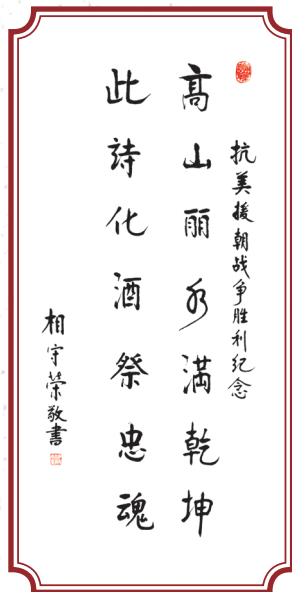 抗美援朝战争胜利纪念
高山丽水满乾坤
此詩化酒祭忠魂
相宇荣敬書